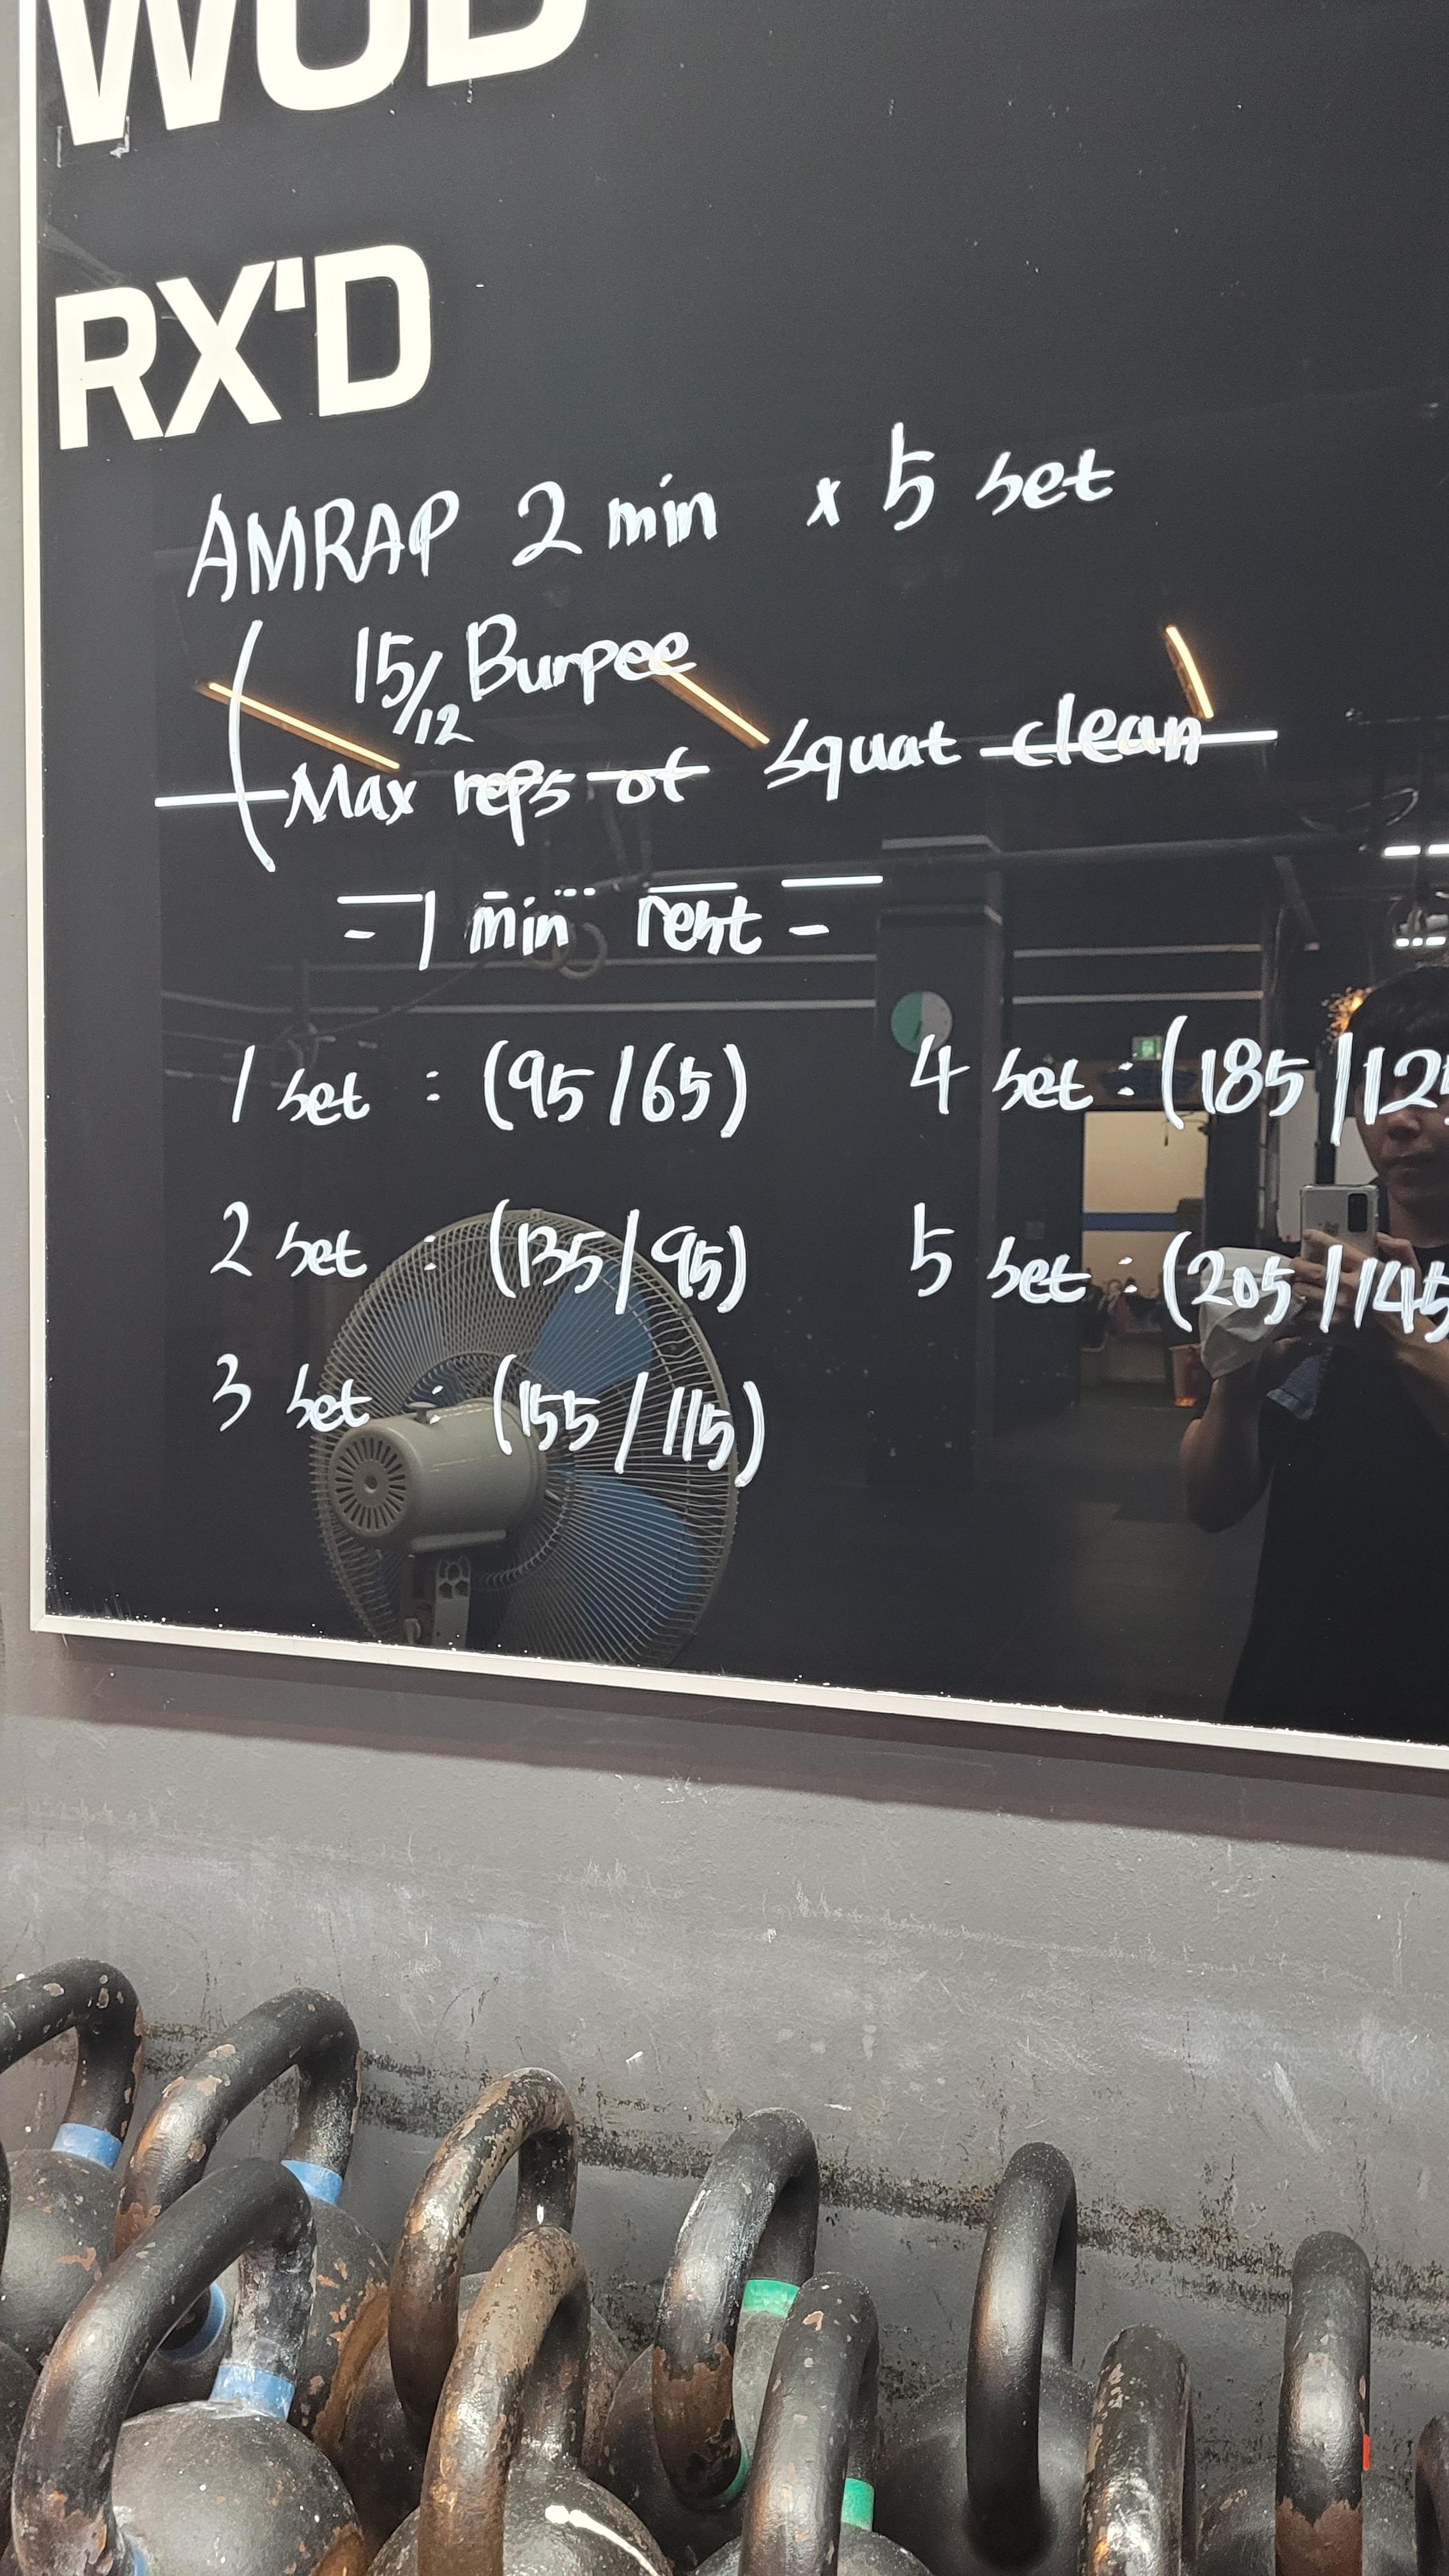 WOD
RX'D
AMRAP 2 min x 5 set
15/12 Burpee
Max reps of squat clean
- 1 min rest -
1 set : (95/65)
2 set : (135/95)
3 set : (155/115)
4 set : (185/125
5 set : (205/145